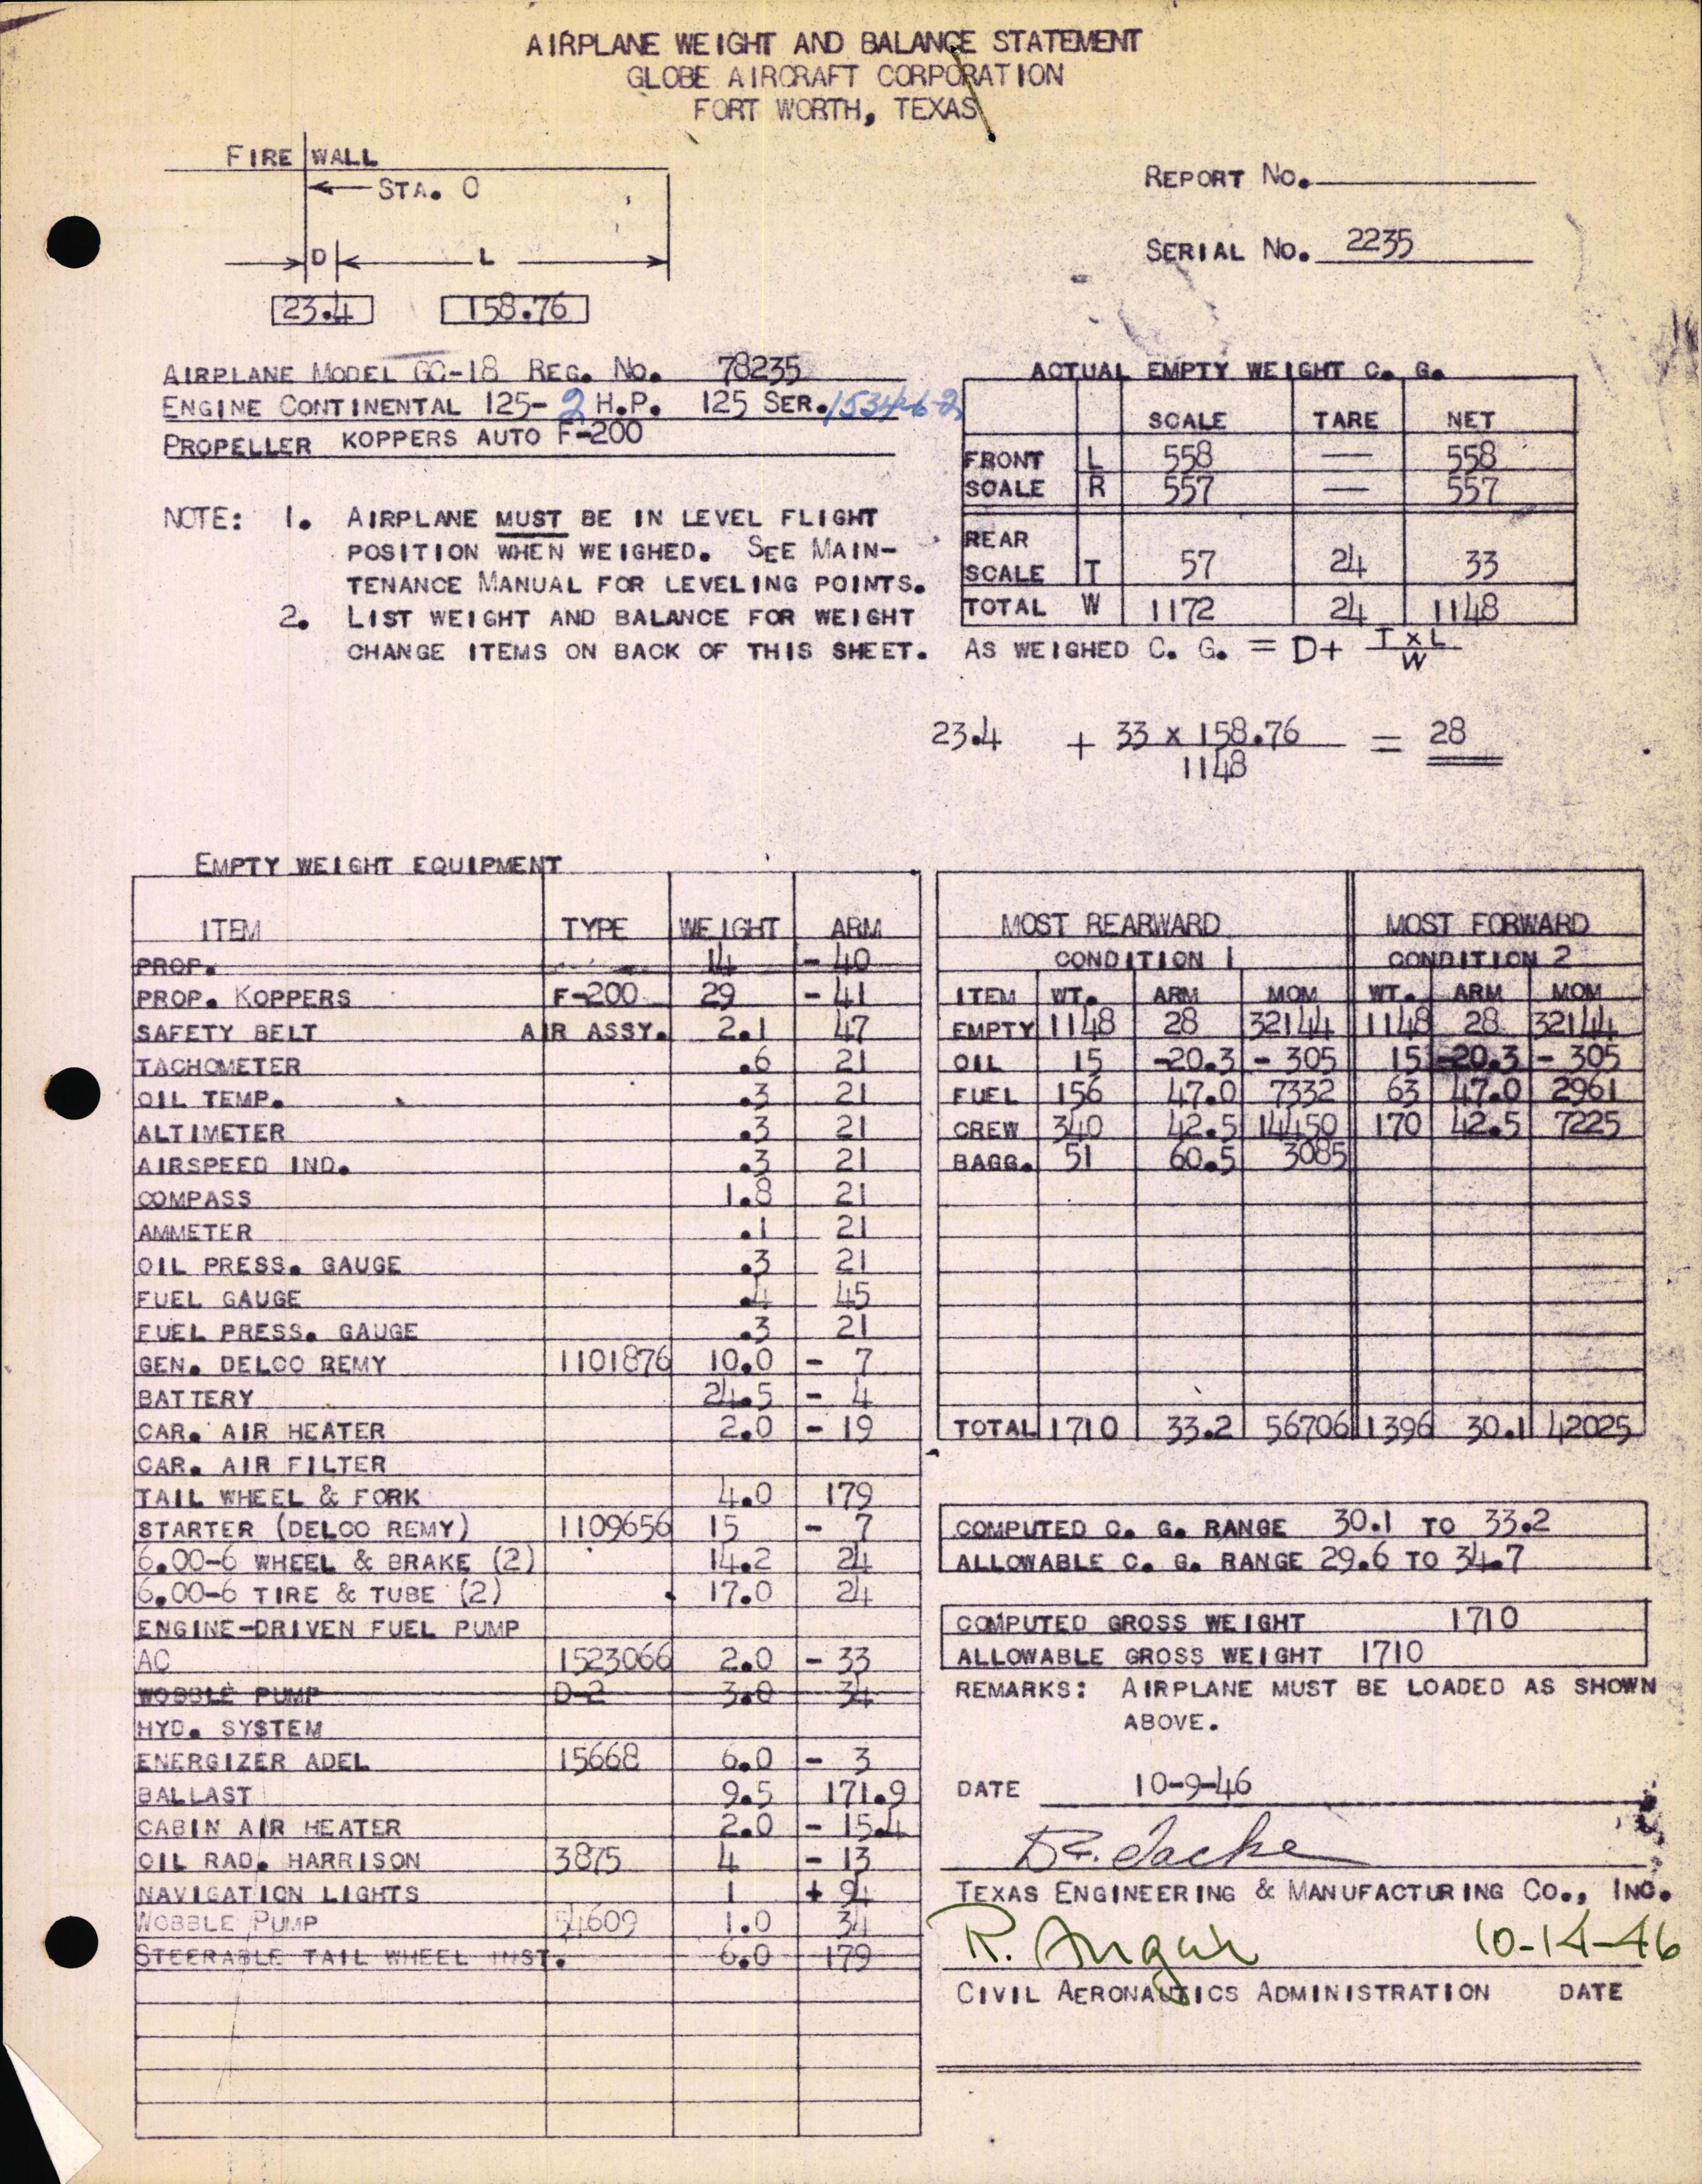 AIRPLANE WEIGHT AND BALANCE STATEMENT
GLOBE AIRCRAFT CORPORATION
FORT WORTH, TEXAS
FIRE WALL
STA. 0
D L
23.4 158.76
REPORT NO.
SERIAL NO. 2235
AIRPLANE MODEL GC-1B REG. NO. 78235
ENGINE CONTINENTAL 125-2 H.P. 125 SER.
PROPELLER KOPPERS AUTO F-200
NOTE: 1. AIRPLANE MUST BE IN LEVEL FLIGHT
POSITION WHEN WEIGHED. SEE MAIN-
TENANCE MANUAL FOR LEVELING POINTS.
2. LIST WEIGHT AND BALANCE FOR WEIGHT
CHANGE ITEMS ON BACK OF THIS SHEET.
ACTUAL EMPTY WEIGHT C. G.
SCALE TARE NET
FRONT L 558 — 558
SCALE R 557 — 557
REAR
SCALE T 57 24 33
TOTAL W 1172 24 1148
AS WEIGHED C. G. = D+ T x L
W
23.4 + 33 x 158.76 = 28
1148
EMPTY WEIGHT EQUIPMENT
ITEM TYPE WEIGHT ARM
PROP. 14 - 40
PROP. KOPPERS F-200 29 - 41
SAFETY BELT AIR ASSY. 2.1 47
TACHOMETER .6 21
OIL TEMP. .3 21
ALTIMETER .3 21
AIRSPEED IND. .3 21
COMPASS 1.8 21
AMMETER .1 21
OIL PRESS. GAUGE .3 21
FUEL GAUGE .4 45
FUEL PRESS. GAUGE .3 21
GEN. DELCO REMY 1101876 10.0 - 7
BATTERY 24.5 - 4
CAR. AIR HEATER 2.0 - 19
CAR. AIR FILTER
TAIL WHEEL & FORK 4.0 179
STARTER (DELCO REMY) 1109656 15 - 7
6.00-6 WHEEL & BRAKE (2) 14.2 24
6.00-6 TIRE & TUBE (2) 17.0 24
ENGINE-DRIVEN FUEL PUMP
AC 1523066 2.0 - 33
WOBBLE PUMP D-2 3.0 34
HYD. SYSTEM
ENERGIZER ADEL 15668 6.0 - 3
BALLAST 9.5 171.9
CABIN AIR HEATER 2.0 - 15.4
OIL RAD. HARRISON 3875 4 - 13
NAVIGATION LIGHTS 1 + 94
WOBBLE PUMP 54609 1.0 34
STEERABLE TAIL WHEEL INST. 6.0 179
MOST REARWARD MOST FORWARD
CONDITION 1 CONDITION 2
ITEM WT. ARM MOM WT. ARM MOM
EMPTY 1148 28 32144 1148 28 32144
OIL 15 -20.3 - 305 15 -20.3 - 305
FUEL 156 47.0 7332 63 47.0 2961
CREW 340 42.5 14450 170 42.5 7225
BAGG. 51 60.5 3085
TOTAL 1710 33.2 56706 1396 30.1 42025
COMPUTED C. G. RANGE 30.1 TO 33.2
ALLOWABLE C. G. RANGE 29.6 TO 34.7
COMPUTED GROSS WEIGHT 1710
ALLOWABLE GROSS WEIGHT 1710
REMARKS: AIRPLANE MUST BE LOADED AS SHOWN
ABOVE.
DATE 10-9-46
TEXAS ENGINEERING & MANUFACTURING CO., INC.
R. 10-14-46
CIVIL AERONAUTICS ADMINISTRATION DATE